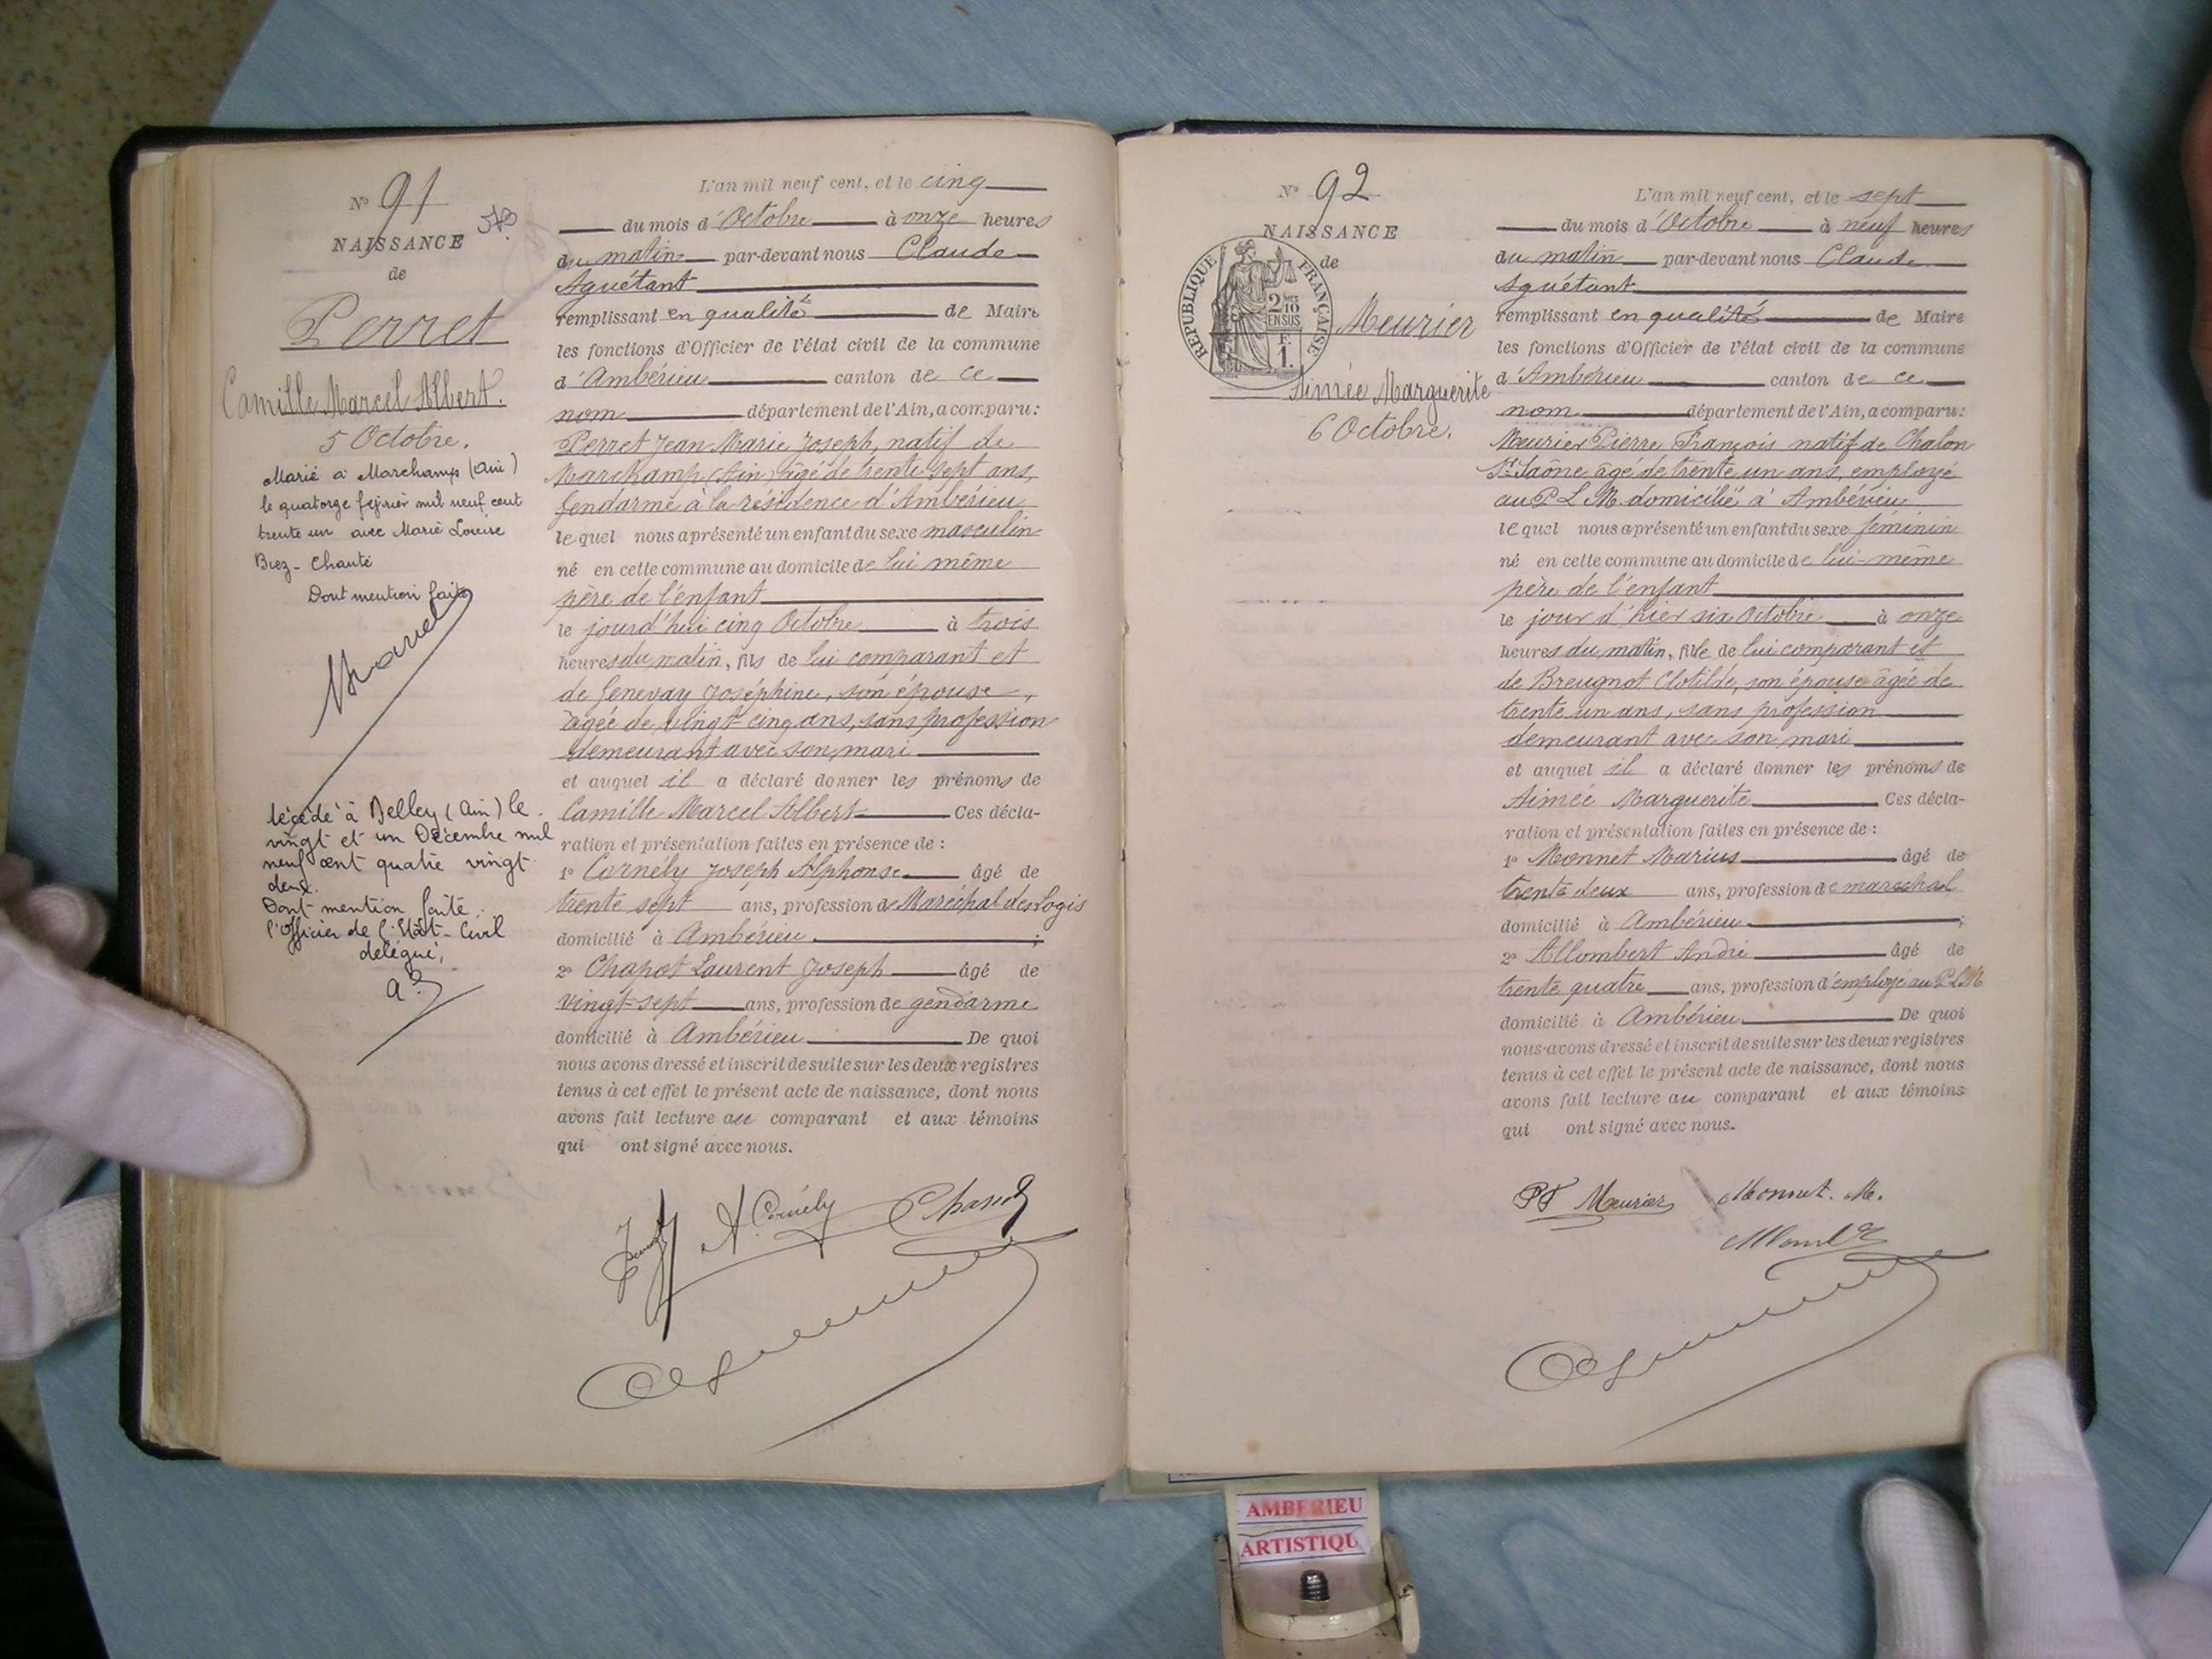 N° 91
NAISSANCE
de
Perret
Camille Marcel Albert.
5 Octobre.
Marié à Marchamp (Ain)
le quatorze février mil neuf cent
trente un avec Marie Louise
Brez-Chanté
Dont mention faite
décédé à Belley (Ain) le
vingt et un Décembre mil
neuf cent quatre vingt
deux.
Dont mention faite,
l'Officier de l'Etat-Civil
délégué,
L'an mil neuf cent, et le cinq
du mois d'Octobre à onze heures
du matin par-devant nous Claude
Aguétant
remplissant en qualité de Maire
les fonctions d'Officier de l'état civil de la commune
d'Ambérieu canton de ce
nom département de l'Ain, a comparu:
Perret Jean Marie Joseph, natif de
Marchamp (Ain) âgé de trente sept ans,
Gendarme à la résidence d'Ambérieu
lequel nous a présenté un enfant du sexe masculin
né en cette commune au domicile de lui même
père de l'enfant
le jourd'hui cinq Octobre à trois
heures du matin, fils de lui comparant et
de Genevay Joséphine, son épouse,
âgée de vingt-cinq ans, sans profession
demeurant avec son mari
et auquel il a déclaré donner les prénoms de
Camille Marcel Albert Ces décla-
ration et présentation faites en présence de :
1° Cornély Joseph Alphonse âgé de
trente sept ans, profession de Maréchal des Logis
domicilié à Ambérieu ;
2° Chapot Laurent Joseph âgé de
vingt-sept ans, profession de gendarme
domicilié à Ambérieu De quoi
nous avons dressé et inscrit de suite sur les deux registres
tenus à cet effet le présent acte de naissance, dont nous
avons fait lecture au comparant et aux témoins
qui ont signé avec nous.
A. Cornély Chapot
N° 92
NAISSANCE
de
RÉPUBLIQUE FRANÇAISE
2/10 EN SUS
F. 1.
Meurier
Aimée Marguerite
6 Octobre.
L'an mil neuf cent, et le sept
du mois d'Octobre à neuf heures
du matin par-devant nous Claude
Aguétant
remplissant en qualité de Maire
les fonctions d'Officier de l'état civil de la commune
d'Ambérieu canton de ce
nom département de l'Ain, a comparu:
Meurier Pierre François natif de Chalon
S-Saône âgé de trente un ans, employé
au P L M. domicilié à Ambérieu
lequel nous a présenté un enfant du sexe féminin
né en cette commune au domicile de lui-même
père de l'enfant
le jour d'hier six Octobre à onze
heures du matin, fille de lui comparant et
de Breugnot Clotilde, son épouse âgée de
trente un ans, sans profession
demeurant avec son mari
et auquel il a déclaré donner les prénoms de
Aimée Marguerite Ces décla-
ration et présentation faites en présence de :
1° Monnet Marius âgé de
trente deux ans, profession de maréchal
domicilié à Ambérieu ;
2° Allombert André âgé de
trente quatre ans, profession d'employé au P.L.M
domicilié à Ambérieu De quoi
nous avons dressé et inscrit de suite sur les deux registres
tenus à cet effet le présent acte de naissance, dont nous
avons fait lecture au comparant et aux témoins
qui ont signé avec nous.
PF Meurier Monnet. M.
AMBERIEU
ARTISTIQU